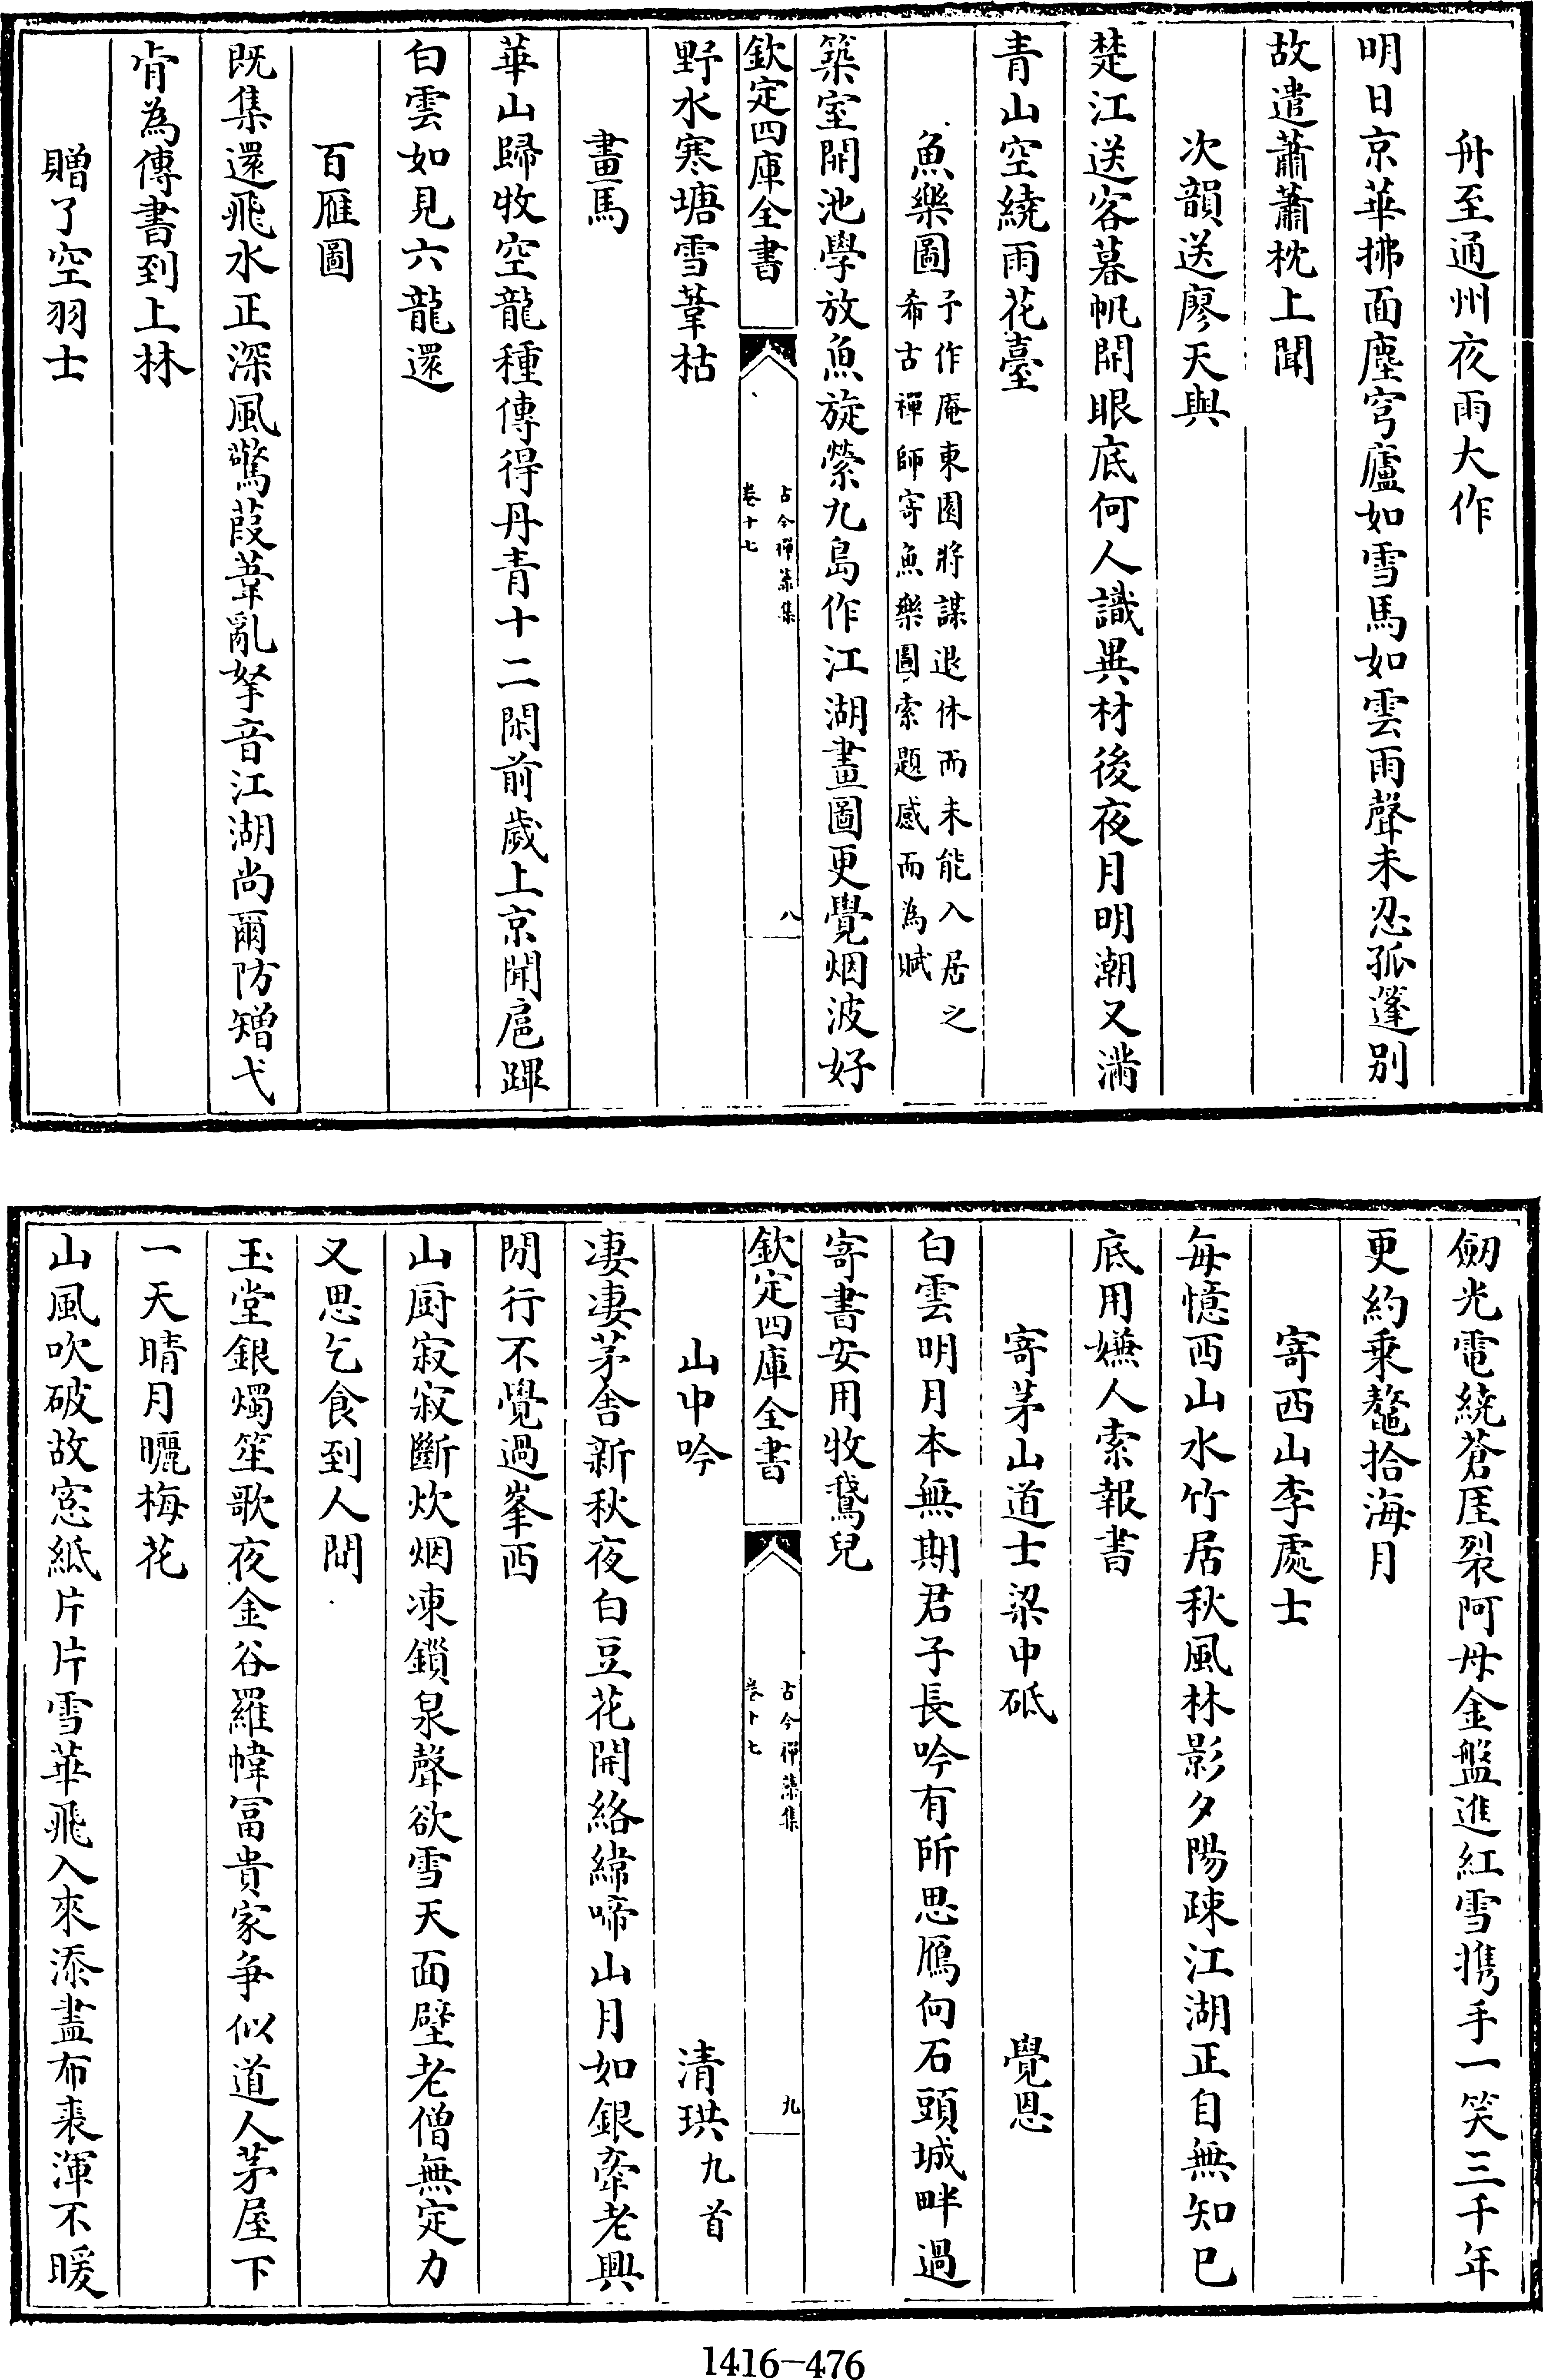 舟至通州夜雨大作
明日京華拂面塵穹廬如雪馬如雲雨聲未忍孤蓬别
故遣蕭蕭枕上聞
次韻送廖天與
楚江送客暮帆開眼底何人識異材後夜月明潮又滿
青山空繞雨花臺
魚樂圖予作庵東園將謀退休而未能入居之
希古禪師寄魚樂圖索題感而為賦
築室開池學放魚旋縈九島作江湖畫圖更覺烟波好
欽定四庫全書
古今禪藻集
卷十七
八
野水寒塘雪葦枯
畫馬
華山歸牧空龍種傳得丹青十二閑前歲上京聞扈蹕
白雲如見六龍還
百雁圖
既集還飛水正深風驚葭葦亂拏音江湖尚爾防矰弋
肯為傳書到上林
贈了空羽士
劒光電繞蒼厓裂阿母金盤進紅雪携手一笑三千年
更約乗鼇拾海月
寄西山李處士
每憶西山水竹居秋風林影夕陽疎江湖正自無知已
底用嫌人索報書
寄茅山道士梁中砥
覺恩
白雲明月本無期君子長吟有所思鴈向石頭城畔過
寄書安用牧鵞兒
欽定四庫全書
古今禪藻集
卷十七
九
山中吟
清珙九首
凄凄茅舍新秋夜白豆花開絡緯啼山月如銀牽老興
閒行不覺過峯西
山厨寂寂斷炊烟凍鎖泉聲欲雪天面壁老僧無定力
又思乞食到人間
玉堂銀燭笙歌夜金谷羅幃冨貴家争似道人茅屋下
一天晴月曬梅花
山風吹破故窓紙片片雪華飛入來添盡布裘渾不暖
1416-476